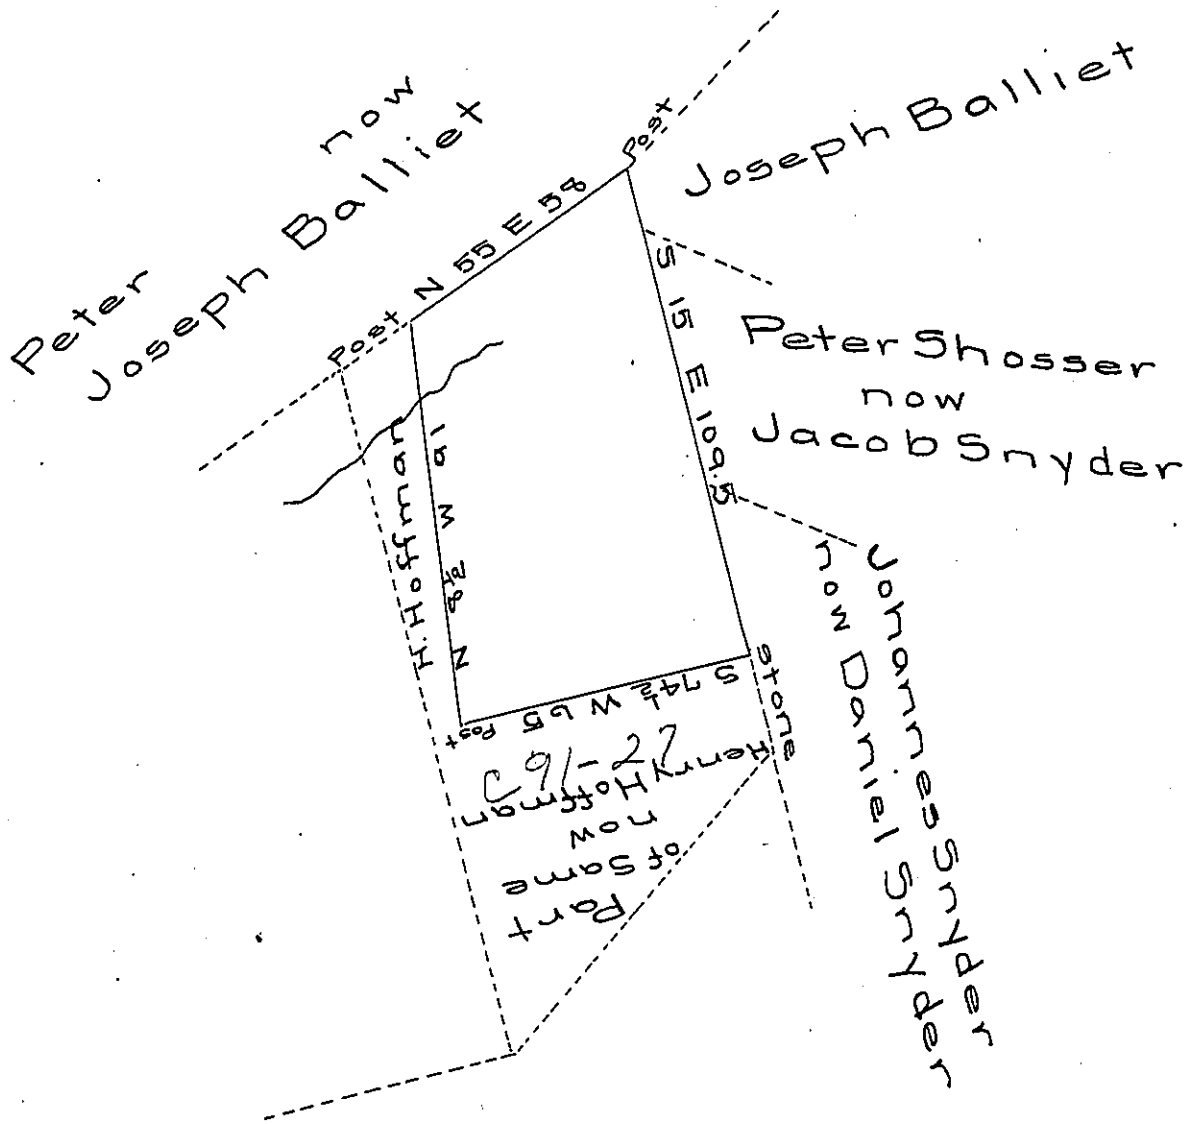 Peter
now
Joseph Balliet
Joseph Balliet
Post
N 55 E 58
Post
S 15 E 109.5
Peter Shosser
now
Jacob Snyder
Johannes Snyder
now Daniel Snyder
Stone
S 74½ W 65
Post
N 8½ W 91
H. Hoffman
C 91-27
Part
of Same
now
Henry Hoffman